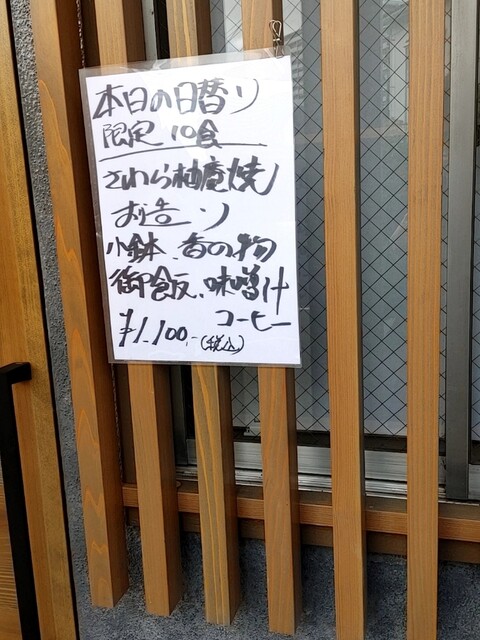 本日の日替り
限定 10食
さわら柚庵焼
お造り
小鉢、香の物
御飯、味噌汁
コーヒー
¥1,100.-(税込)